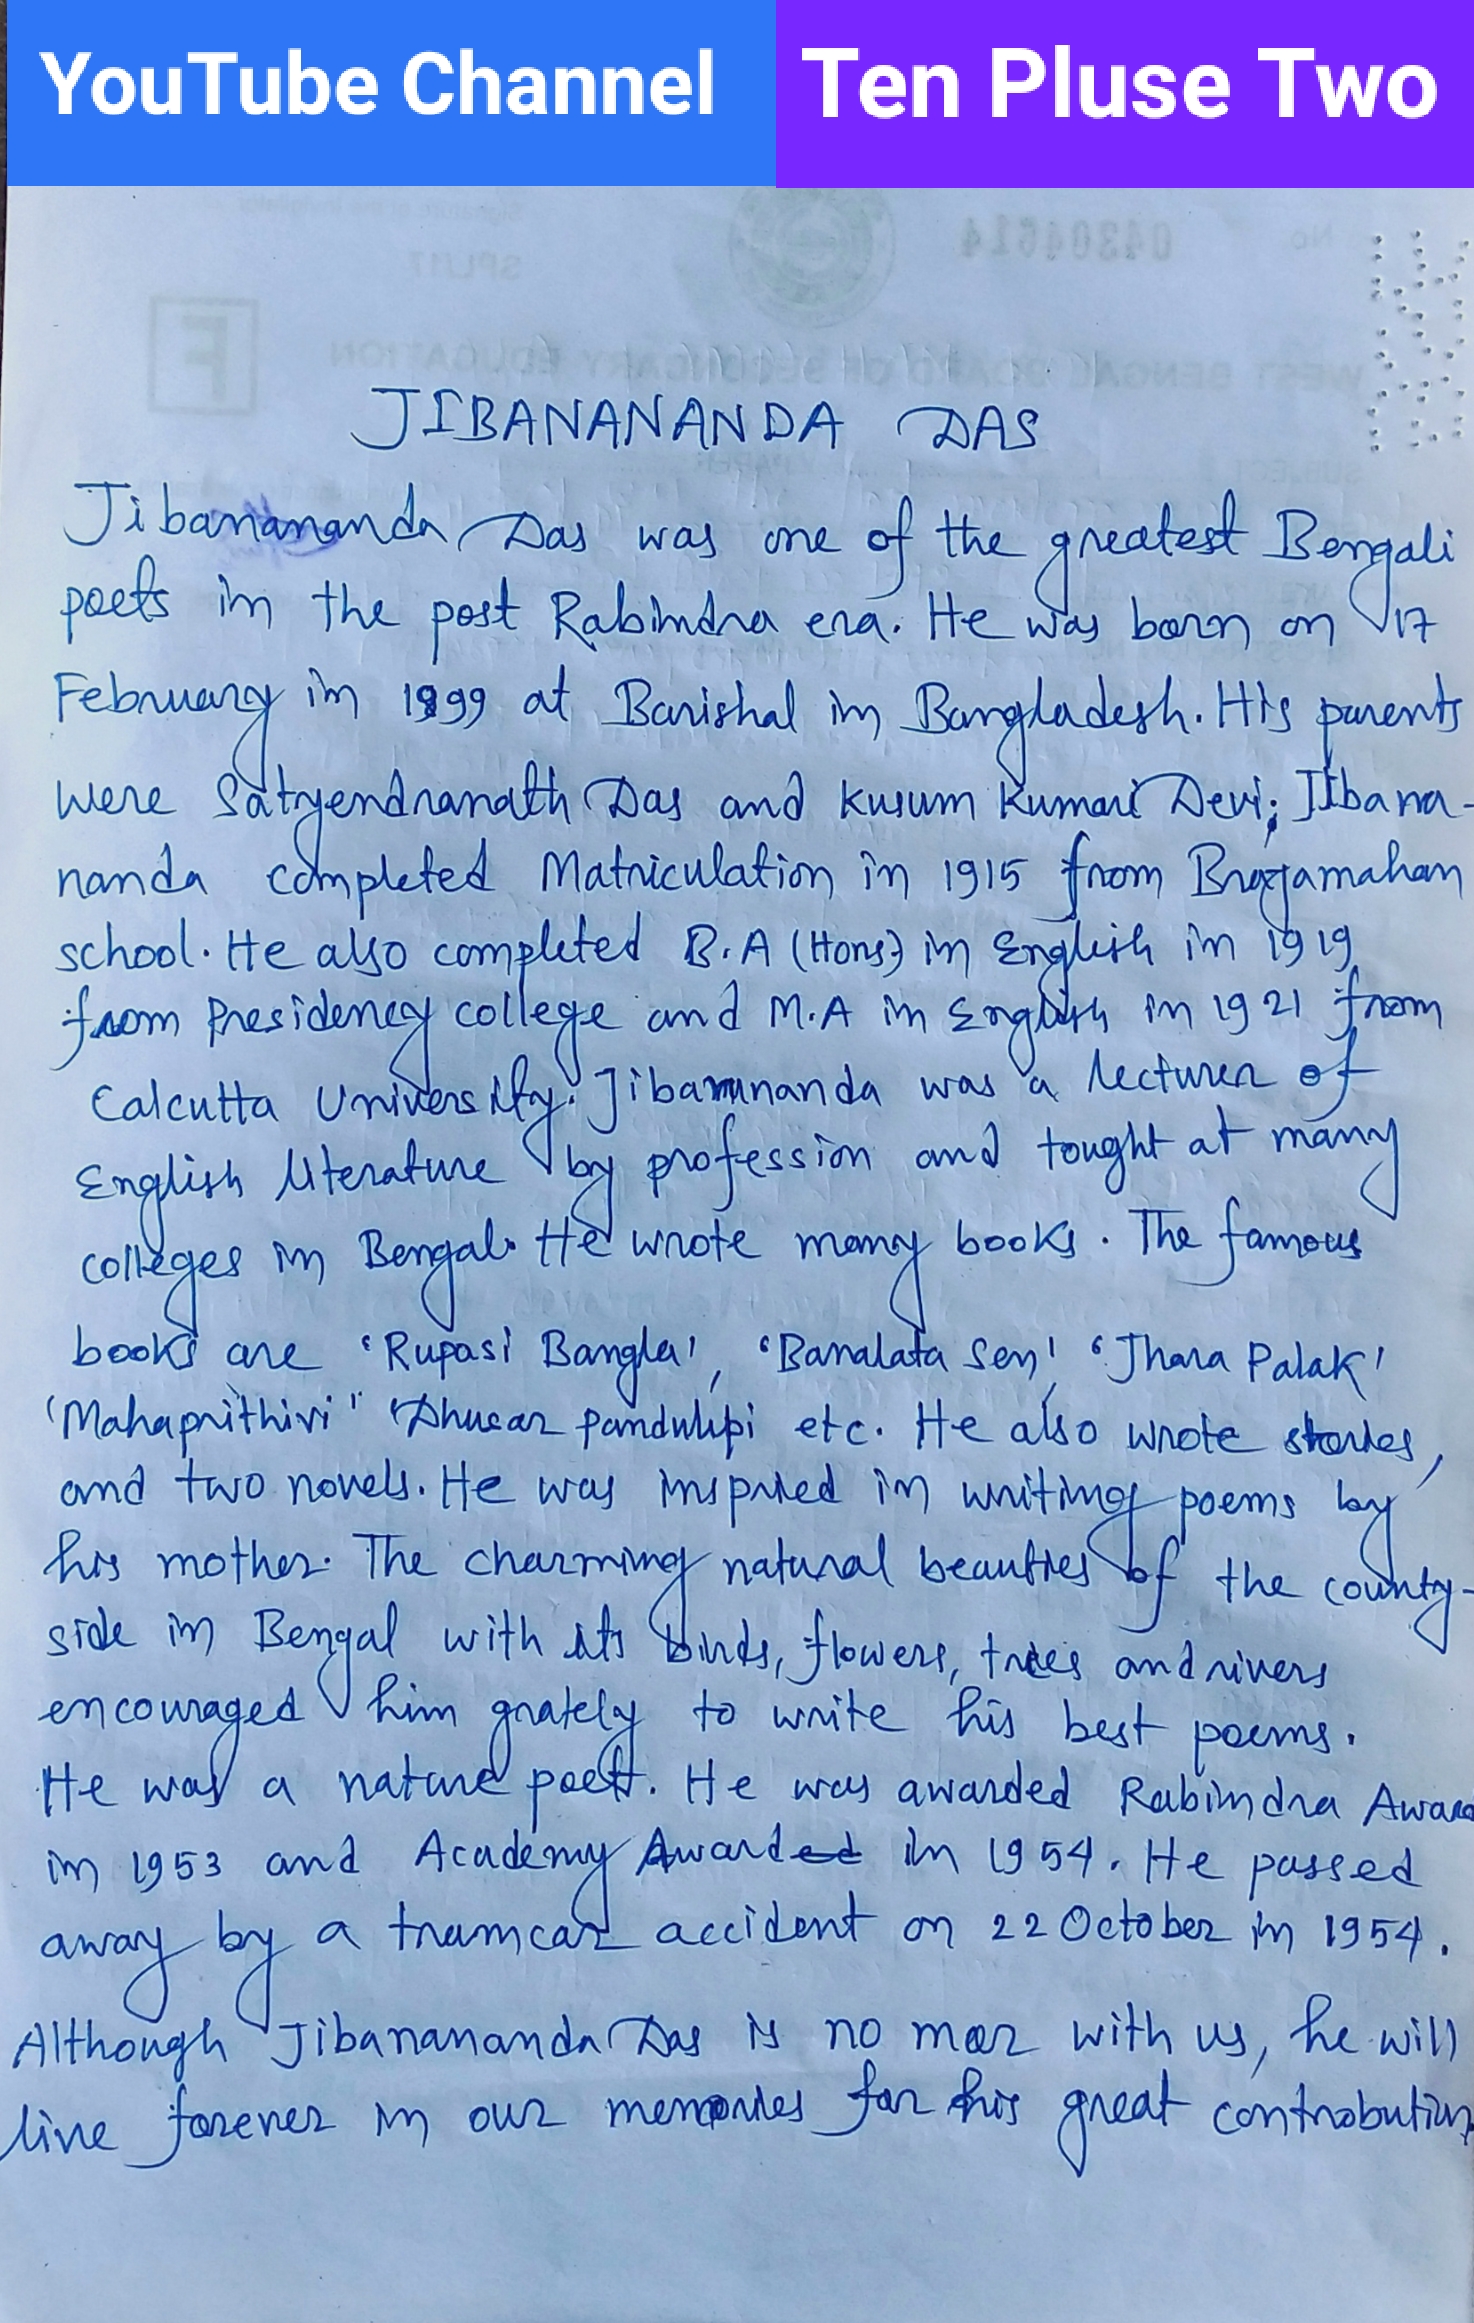 YouTube Channel Ten Pluse Two
No. 04304614
SPL/17
F
WEST BENGAL BOARD OF SECONDARY EDUCATION
JIBANANANDA DAS
Jibanananda Das was one of the greatest Bengali
poets in the post Rabindra era. He was born on 17
February in 1899 at Barishal in Bangladesh. His parents
were Satyendranath Das and Kusum Kumari Devi; Jibana-
nanda completed Matriculation in 1915 from Brajamahan
school. He also completed B.A (Hons) in English in 1919
from Presidency college and M.A in English in 1921 from
Calcutta University. Jibanananda was a lecturer of
English literature by profession and tought at many
colleges in Bengal. He wrote many books. The famous
books are 'Rupasi Bangla', 'Banalata Sen', 'Jhara Palak'
'Mahaprithivi" 'Dhusar pandulipi etc. He also wrote stories,
and two novels. He was inspried in writing poems by
his mother. The charming natural beauties of the county-
side in Bengal with its birds, flowers, trees and rivers
encouraged him grately to write his best poems.
He was a nature poet. He was awarded Rabindra Award
in 1953 and Academy Awarded in 1954. He passed
away by a tramcar accident on 22 October in 1954.
Although Jibanananda Das is no mor with us, he will
live forever in our memories for his great controbution